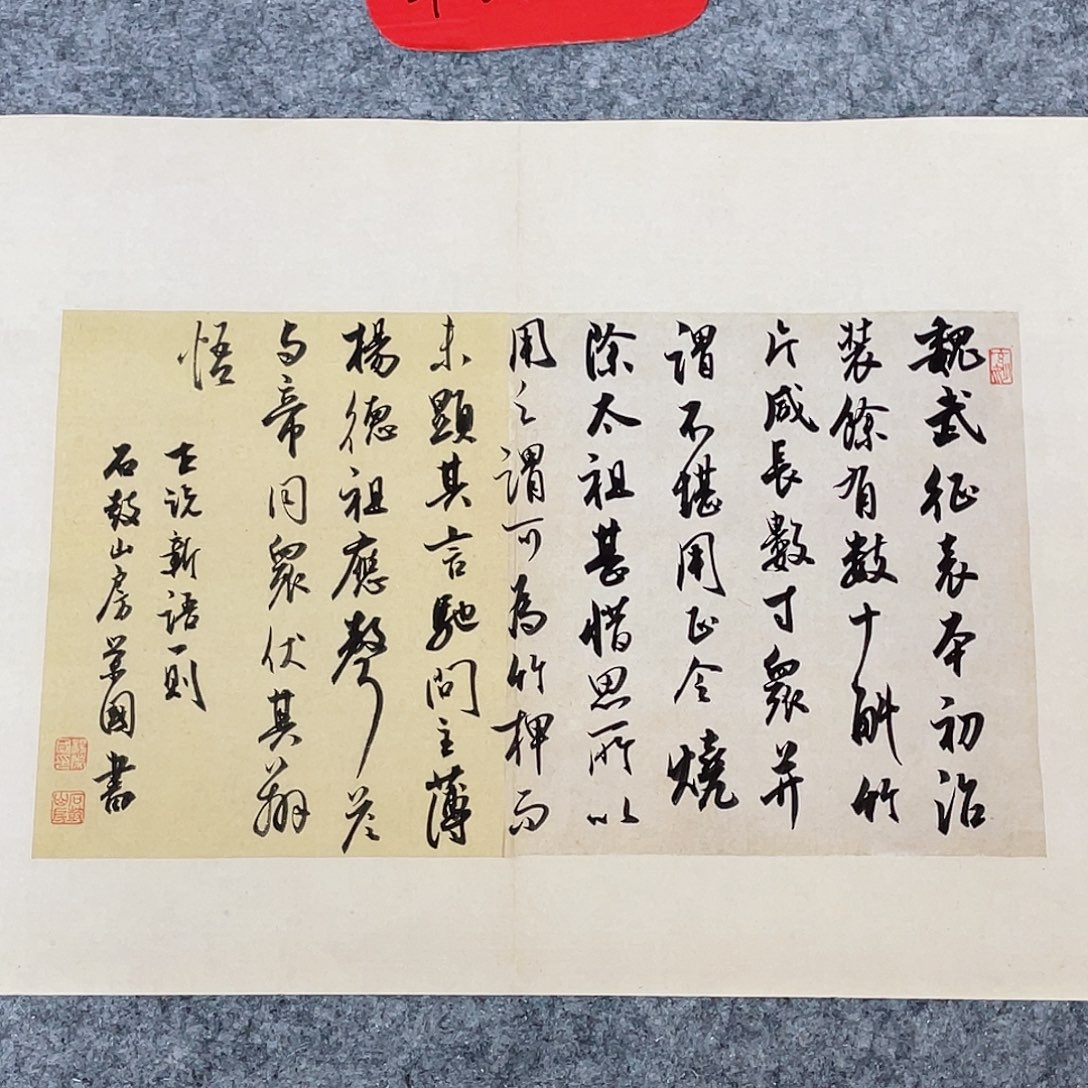 魏武征袁本初治
装餘有數十斛竹
片咸長數寸眾并
謂不堪用正令燒
除太祖甚惜思所以
用之謂可為竹椑而
未顯其言馳問主薄
楊德祖應聲答
与帝同眾伏其辩
悟
世説新語一則
石鼓山房國書